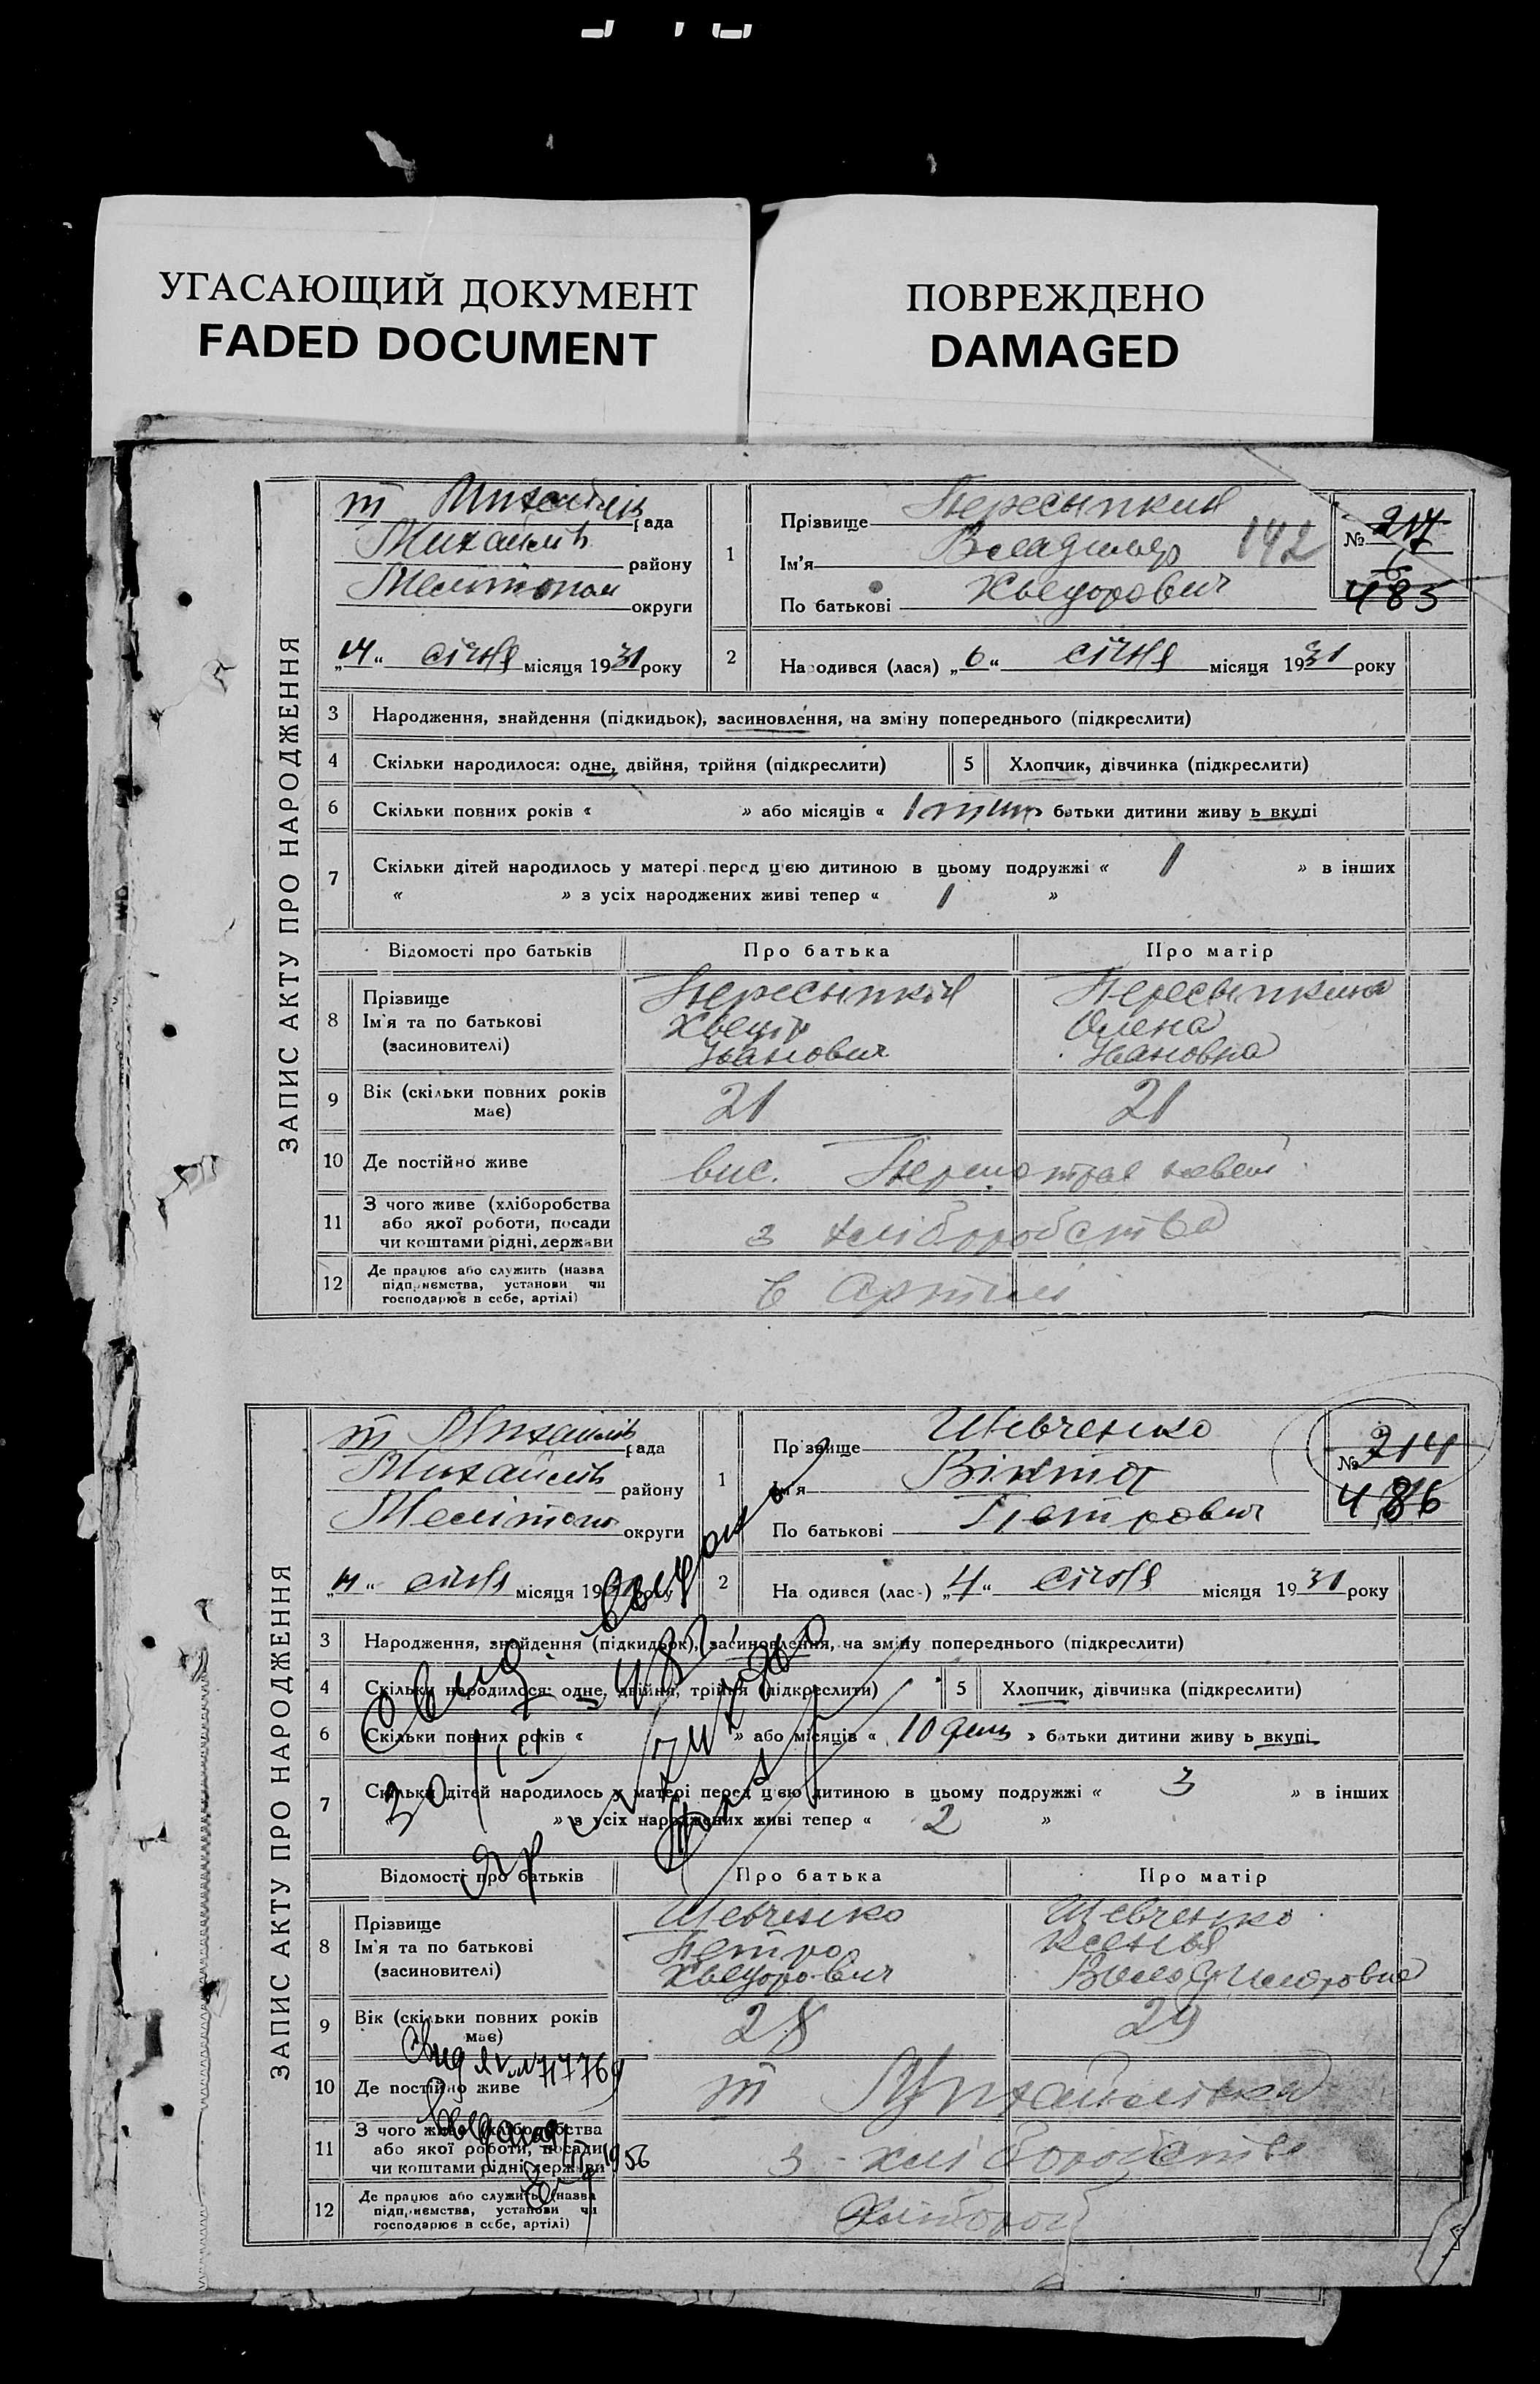 УГАСАЮЩИЙ ДОКУМЕНТ
FADED DOCUMENT
ПОВРЕЖДЕНО
DAMAGED
ЗАПИС АКТУ ПРО НАРОДЖЕННЯ
рада
Михайлів району
Мелітопол округи
„14“ січня місяця 1931 року
1 Прізвище Пересыпкин
Ім'я Владимир 142
По батькові Хведорович
№ 217
6
485
2 Народився (лася) „6“ січня місяця 1931 року
3 Народження, знайдення (підкидьок), засиновлення, на зміну попереднього (підкреслити)
4 Скільки народилося: одне, двійня, трійня (підкреслити) 5 Хлопчик, дівчинка (підкреслити)
6 Скільки повних років « » або місяців « » батьки дитини живу ь вкупі
7 Скільки дітей народилось у матері перед цією дитиною в цьому подружжі « 1 » в інших
« » з усіх народжених живі тепер « 1 »
Відомості про батьків Про батька Про матір
8 Прізвище
Ім'я та по батькові
(засиновителі)
Пересыпкін
Хведір
Іванович
Пересыпкина
Олена
Івановна
9 Вік (скільки повних років має) 21 21
10 Де постійно живе вис.
11 З чого живе (хліборобства
або якої роботи, посади
чи коштами рідні, держави
з хліборобства
12 Де працює або служить (назва
підприємства, установи чи
господарює в себе, артілі)
в Артілі
ЗАПИС АКТУ ПРО НАРОДЖЕННЯ
m Михайлів рада
Михайлів району
Мелітопол округи
„14“ січня місяця 1931 року
1 Прізвище Шевченко
Ім'я Віктор
По батькові Петрович
№ 214
486
2 На одився (лас-) „4“ січня місяця 1931 року
3 Народження, знайдення (підкидьок), засиновлення, на зміну попереднього (підкреслити)
4 Скільки народилося: одне, двійня, трійня (підкреслити) 5 Хлопчик, дівчинка (підкреслити)
6 Скільки повних років « » або місяців « 10 день » батьки дитини живу ь вкупі
7 Скільки дітей народилось у матері перед цією дитиною в цьому подружжі « 3 » в інших
» з усіх народжених живі тепер « 2 »
Відомості про батьків Про батька Про матір
8 Прізвище
Ім'я та по батькові
(засиновителі)
Шевченко
Петро
Хведорович
Шевченко
Ксенья
9 Вік (скільки повних років має) 28 29
10 Де постійно живе m Михайлівка
11 З чого живе (хліборобства
або якої роботи, посади
чи коштами рідні, держави
з хліборобства
12 Де працює або служить (назва
підприємства, установи чи
господарює в себе, артілі)
Хлібороб
1956